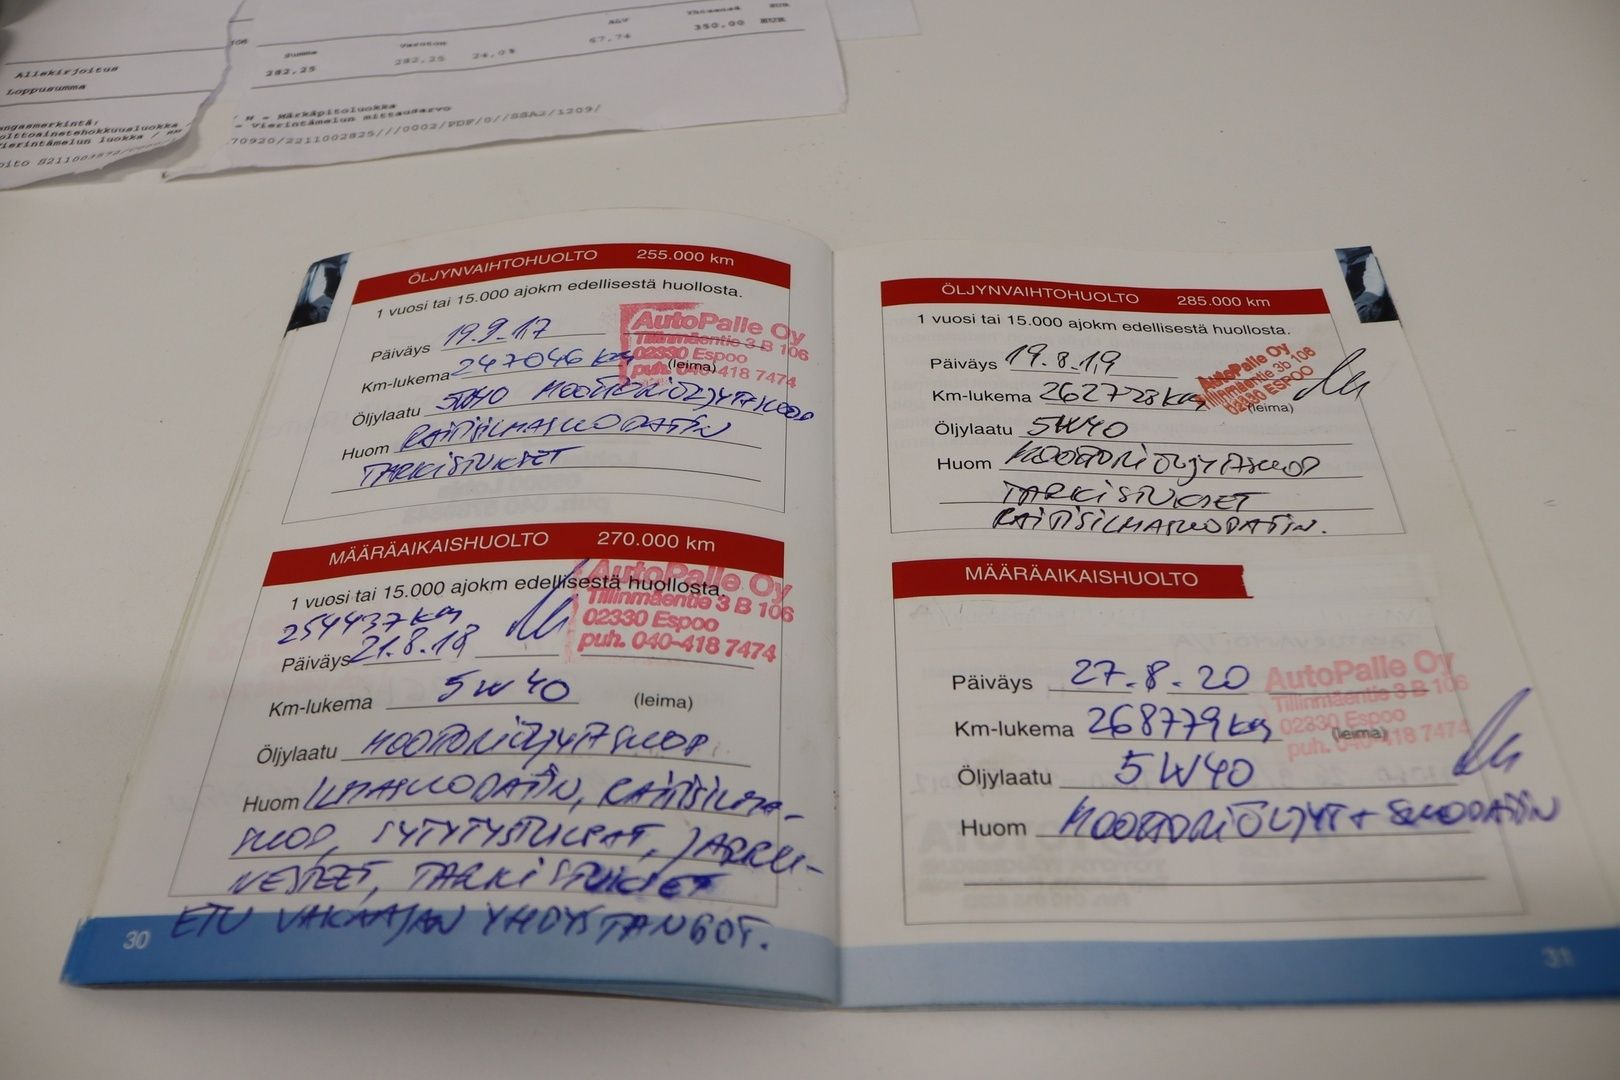 Allekirjoitus
Loppusumma
106
Summa Veroton ALV Yhteensä EUR
282,25 282,25 24,0% 67,74 350,00 EUR
M = Märkäpitoluokka
= Vierintämelun mittausarvo
70920/2211002825///0002/PDF/0//SSA2/1209/
ÖLJYNVAIHTOHUOLTO 255.000 km
1 vuosi tai 15.000 ajokm edellisestä huollosta.
Päiväys 19.9.17
Km-lukema 247046 km (leima)
Öljylaatu 5W40 MOOTTORIÖLJYT+SUOD
Huom RAITISILMASUODATIN
TARKISTUKSET
AutoPalle Oy
Tillinmäentie 3 B 106
02330 Espoo
puh. 040-418 7474
MÄÄRÄAIKAISHUOLTO 270.000 km
1 vuosi tai 15.000 ajokm edellisestä huollosta.
254437 km
Päiväys 21.8.18
Km-lukema 5W40 (leima)
Öljylaatu MOOTTORIÖLJYT+SUOD.
Huom ILMASUODATIN, RAITISILMA-
SUOD, SYTYTYSTULPAT, JARRU-
NESTEET, TARKISTUKSET
ETU VAKAAJAN YHDYSTANGOT.
AutoPalle Oy
Tillinmäentie 3 B 106
02330 Espoo
puh. 040-418 7474
30
ÖLJYNVAIHTOHUOLTO 285.000 km
1 vuosi tai 15.000 ajokm edellisestä huollosta.
Päiväys 19.8.19
Km-lukema 262728 km (leima)
Öljylaatu 5W40
Huom MOOTTORIÖLJYT+SUOD
TARKISTUKSET
RAITISILMASUODATIN.
AutoPalle Oy
Tillinmäentie 3b 106
02330 ESPOO
MÄÄRÄAIKAISHUOLTO
Päiväys 27.8.20
Km-lukema 268779 km (leima)
Öljylaatu 5W40
Huom MOOTTORIÖLJYT+SUODATIN
AutoPalle Oy
Tillinmäentie 3 B 106
02330 Espoo
puh. 040-418 7474
31